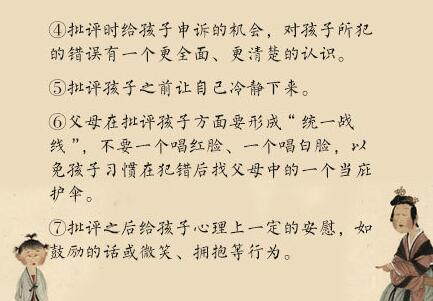 ④批评时给孩子申诉的机会，对孩子所犯
的错误有一个更全面、更清楚的认识。
⑤批评孩子之前让自己冷静下来。
⑥父母在批评孩子方面要形成“统一战
线”，不要一个唱红脸、一个唱白脸，以
免孩子习惯在犯错后找父母中的一个当庇
护伞。
⑦批评之后给孩子心理上一定的安慰，如
鼓励的话或微笑、拥抱等行为。